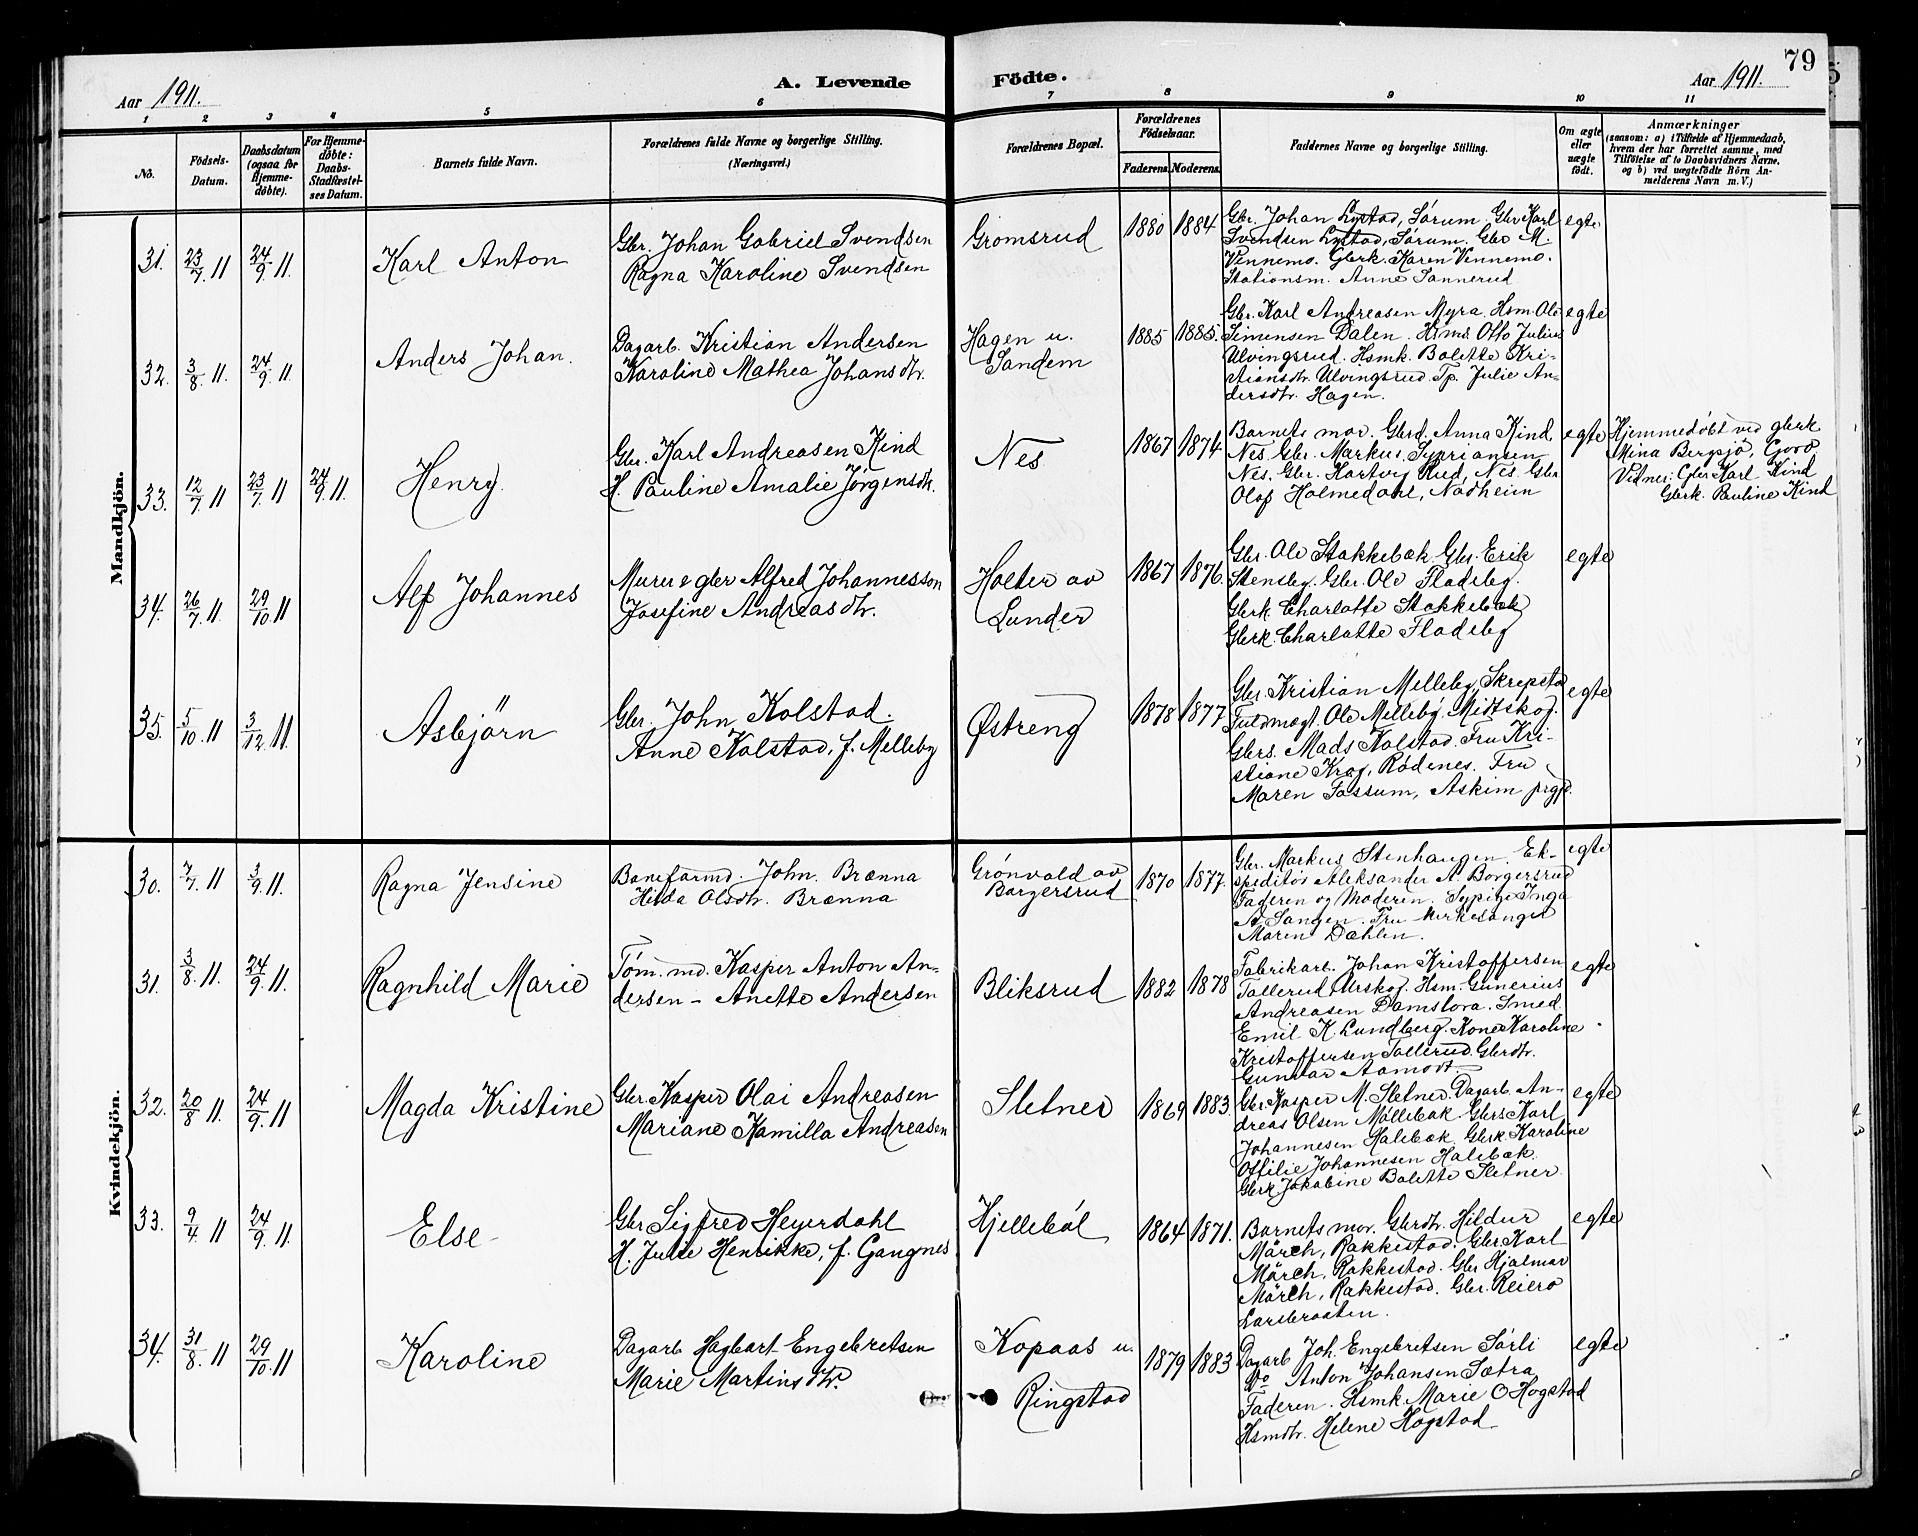 79
Aar 1911.
A. Levende Födte.
Aar 1911.
1 2 3 4 5 6 7 8 9 10 11
No.
Födsels-
Datum.
Daabsdatum
(ogsaa for
Hjemme-
döbte).
For Hjemme-
döbte:
Daabs-
Stadfæstel-
ses Datum.
Barnets fulde Navn.
Forældrenes fulde Navne og borgerlige Stilling.
(Næringsvei.)
Forældrenes Bopæl.
Forældrenes
Födselsaar.
Faderens. Moderens.
Faddernes Navne og borgerlige Stilling.
Om ægte
eller
uægte
födt.
Anmærkninger
(saasom: a) i Tilfælde af Hjemmedaab,
hvem der har forrettet samme, med
Tilföielse af to Daabsvidners Navne,
og b) ved uægtefödte Börn An-
melderens Navn m. V.)
Mandkjön.
31. 23/7 11 24/9 11. Karl Anton
Gbr. Johan Gabriel Svendsen
Ragna Karoline Svendsen
Gromsrud 1880 1884
Gbr. Johan Lystad, Sørum. Gbr Karl
Svendsen Lystad, Sørum. Gbr M.
Vennemo. Gbrk. Karen Vennemo.
Stationsm. Anne Sannerud
egte
32. 3/8 11. 24/9 11. Anders Johan.
Dagarb. Kristian Andersen
Karoline Mathea Johansdtr.
Hagen u.
Sandem
1885 1885.
Gbr. Karl Andreasen Myra. Hsm. Ole
Simensen Dalen. Hsms. Otto Julius
Ulvingsrud. Hsmk. Bolette Kri-
stiansdtr. Ulvingsrud. Tp. Julie An-
dersdtr. Hagen.
egte
33. 12/7 11 23/7 11 24/9 11. Henry.
Gbr. Karl Andreasen Kind
H. Pauline Amalie Jørgensdtr.
Nes 1867 1874
Barnets mor. Gbrd. Anna Kind
Nes. Gbr. Markus Sypriansen
Nes. Gbr. Hartvig Rud, Nes. Gbr
Olaf Holmedahl, Nadheim
egte
Hjemmedøbt ved gbrk
Mina Bergsjø,
Vidner: Gbr Karl Kind
Gbrk. Pauline Kind
34. 26/7 11. 29/10 11 Alf Johannes
Murer & gbr Alfred Johannesson
Josefine Andreasdtr.
Holter av
Lunder
1867 1876.
Gbr. Ole Stakkebæk Gbr. Erik
Stensby. Gbr. Ole Fladeby.
Gbrk. Charlotte Stakkebæk
Gbrk. Charlotte Fladeby
egte
35. 5/10 11 3/12 11. Asbjörn
Gbr. John Kolstad.
Anne Kolstad, f. Melleby
Østreng 1878 1877.
Gbr. Kristian Melleby, Skrepsta
Fuldmægt. Ole Melleby, Midtskog.
Gbrs. Mads Kolstad. Fru Kri-
stiane Krog, Rødenes. Fru
Maren Fossum, Askim prgjd.
egte
Kvindekjön.
30. 7/7 11 3/9 11. Ragna Jensine
Baneformd. John Brænna
Hilda Olsdtr. Brænna
Grønvold av
Borgersrud
1870 1877.
Gbr. Markus Stenhaugen. Ek-
speditør Aleksander A. Borgersrud
Faderen og Moderen. Sypige Inga
A. Sangen. Fru kirkesanger
Maren Dæhlen.
egte
31. 3/8 11. 24/9 11. Ragnhild Marie
Tøm. md. Kasper Anton An-
dersen - Anette Andersen
Bliksrud 1882 1878
Fabrikarb. Johan Kristoffersen
Tallerud Urskog. Hsm. Gunerius
Andreasen Damstora. Smed
Emil K. Lundberg. Kone Karoline
Kristoffersen Tallerud. Gbrdtr.
Gunvor Aamodt.
egte
32. 20/8 11. 24/9 11 Magda Kristine
Gbr. Kasper Olai Andreasen
Mariane Kamilla Andreasen
Sletner 1869 1883.
Gbr. Kasper M. Sletner. Dagarb. An-
dreas Olsen Møllebæk. Gbrs Karl
Johannesen Halebæk. Gbrk Karoline
Otilie Johannesen Halebæk.
Gbrk Jakobine Bolette Sletner
egte
33. 9/4 11 24/9 11. Else
Gbr Sigfred Heyerdahl
H. Julie Henrikke, f. Gangnes
Hjellebøl 1864 1871.
Barnets mor. Gbrdtr. Hildur
Mørch, Rakkestad. Gbr. Karl
Mørch, Rakkestad. Gbr Hjalmar
Mørch, Rakkestad. Gbr. Reiero
Larsbraaten.
egte
34. 31/8 11 29/10 11 Karoline
Dagarb Hagbart Engebretsen
Marie Martinsdtr.
Kopaas u.
Ringstad
1879 1883
Dagarb Joh. Engebretsen Sørli
Do Anton Johansen Sætra
Faderen. Hsmk. Marie O Hogstad
Hsmdtr. Helene Hogstad
egte